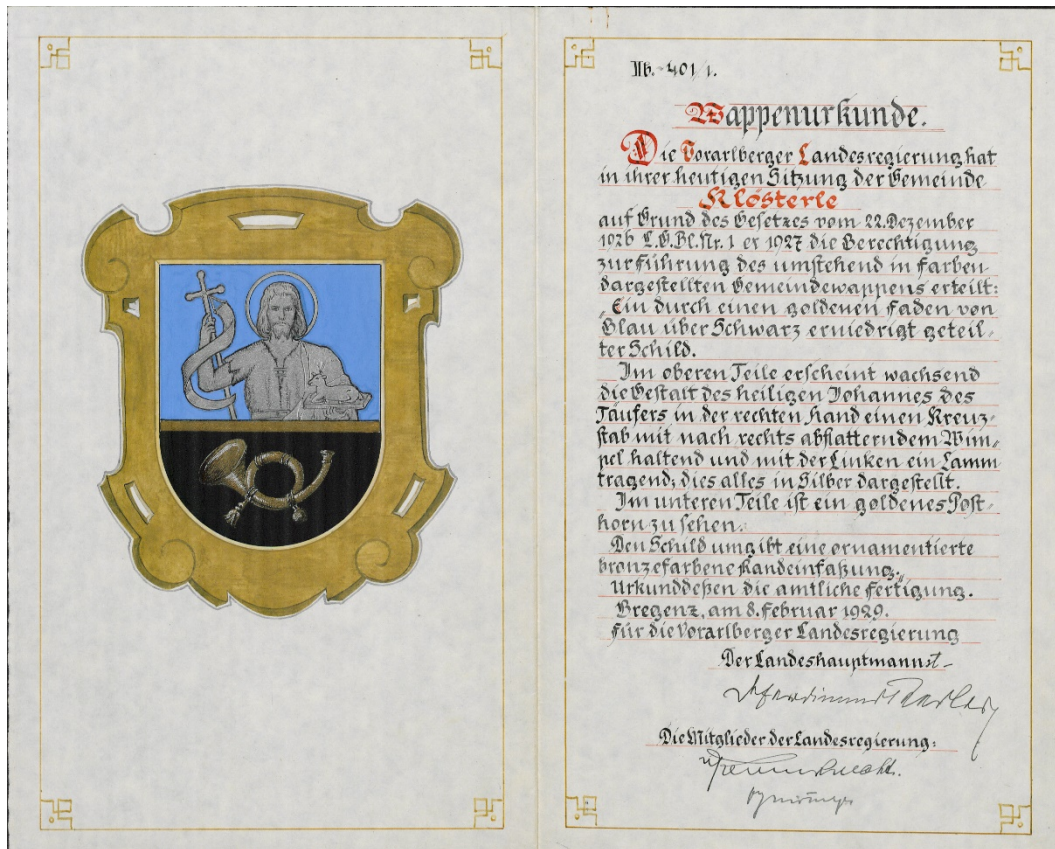 IIb.-401/1.
Wappenurkunde.
Die Vorarlberger Landesregierung hat
in ihrer heutigen Sitzung der Gemeinde
Klösterle
auf Grund des Gesetzes vom 22.Dezember
1926 L.G.Bl.Nr.1 ex 1927 die Berechtigung
zur Führung des umstehend in Farben
dargestellten Gemeindewappens erteilt:
„Ein durch einen goldenen Faden von
Blau über Schwarz erniedrigt geteil-
ter Schild.
Im oberen Teile erscheint wachsend
die Gestalt des heiligen Johannes des
Täufers in der rechten Hand einen Kreuz-
stab mit nach rechts abflatterndem Wim-
pel haltend und mit der Linken ein Lamm
tragend; dies alles in Silber dargestellt.
Im unteren Teile ist ein goldenes Post-
horn zu sehen.
Den Schild umgibt eine ornamentierte
bronzefarbene Randeinfaßung.„
Urkunddeßen die amtliche Fertigung.
Bregenz, am 8.Februar 1929.
Für die Vorarlberger Landesregierung
Der Landeshauptmann
Die Mitglieder der Landesregierung: